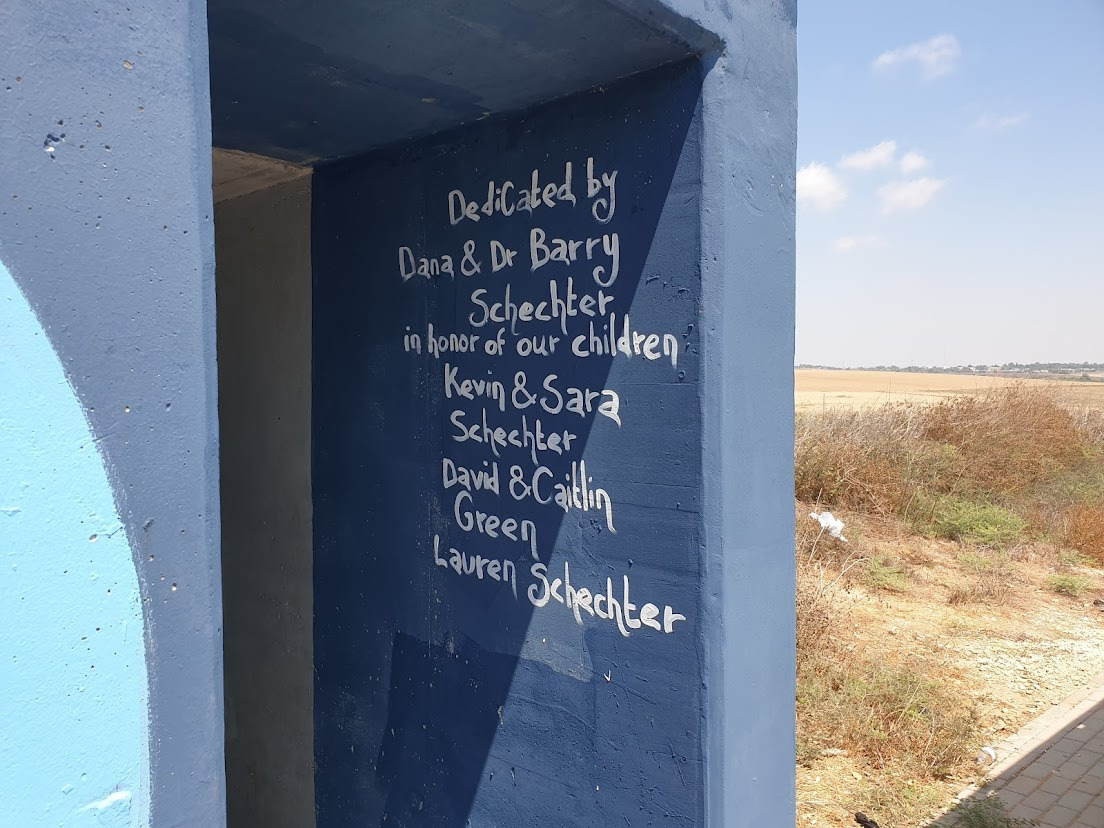 Dedicated by
Dana & Dr Barry
Schechter
in honor of our children
Kevin & Sara
Schechter
David & Caitlin
Green
Lauren Schechter